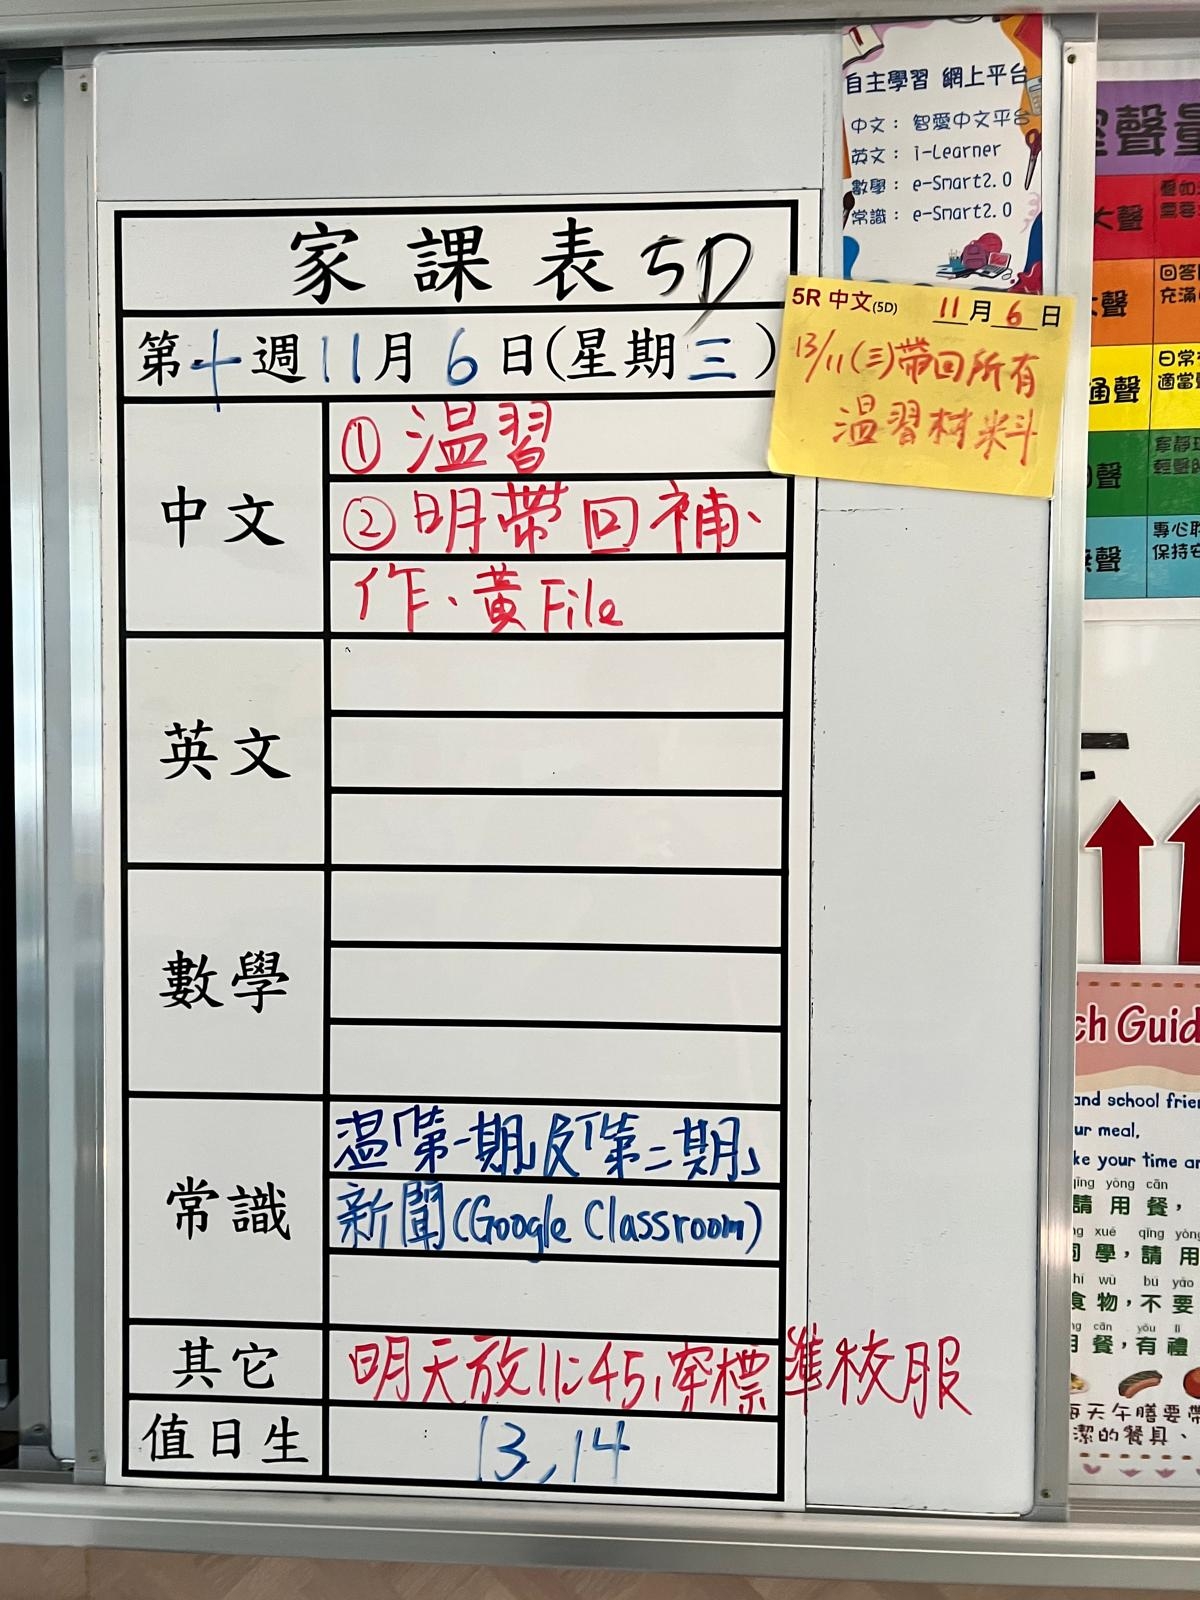 自主學習 網上平台
中文： 智愛中文平台
英文： i-Learner
數學： e-Smart2.0
常識： e-Smart2.0
家課表 5D
第十週11月6日(星期三)
5R 中文(5D) 11月6日
13/11(三)帶回所有
温習材料
中文
①温習
②明帶回補、
作、黃File
英文
數學
常識
温「第一期」及「第二期」
新聞(Google Classroom)
其它
明天放11:45,穿標準校服
值日生
13,14
聲量
大聲
回答
充滿
日常
適當
寧靜
輕聲
專心
保持安
ch Guid
and school frien
ur meal,
ke your time an
qǐng yòng cān
請用餐，
xué qǐng yòng
同學，請用
shí wù bú yào
食物，不要
cān yǒu lǐ
用餐，有禮
每天午膳要帶
潔的餐具、